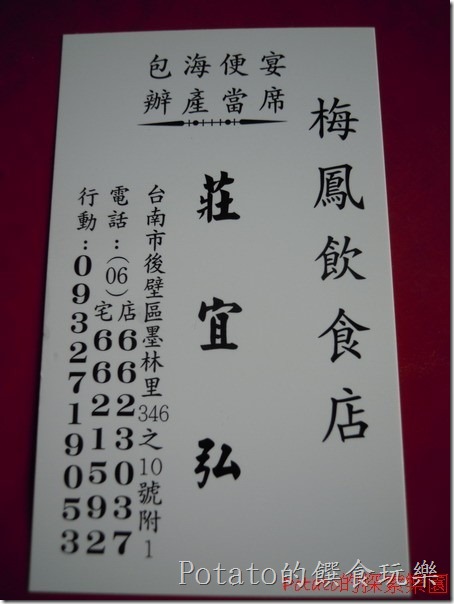 梅鳳飲食店
宴席
便當
海產
包辦
莊宜弘
台南市後壁區墨林里346之10號附1
電話：(06)店6623037
宅6621592
行動：0932719053
Potato的饌食玩樂
Potato的探索樂園